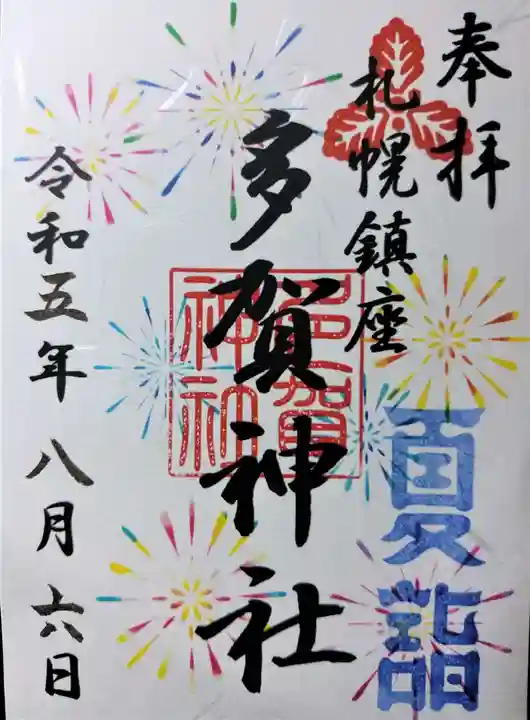 奉拝
札幌鎮座
夏詣
多賀神社
多賀
神社
令和五年 八月 六日